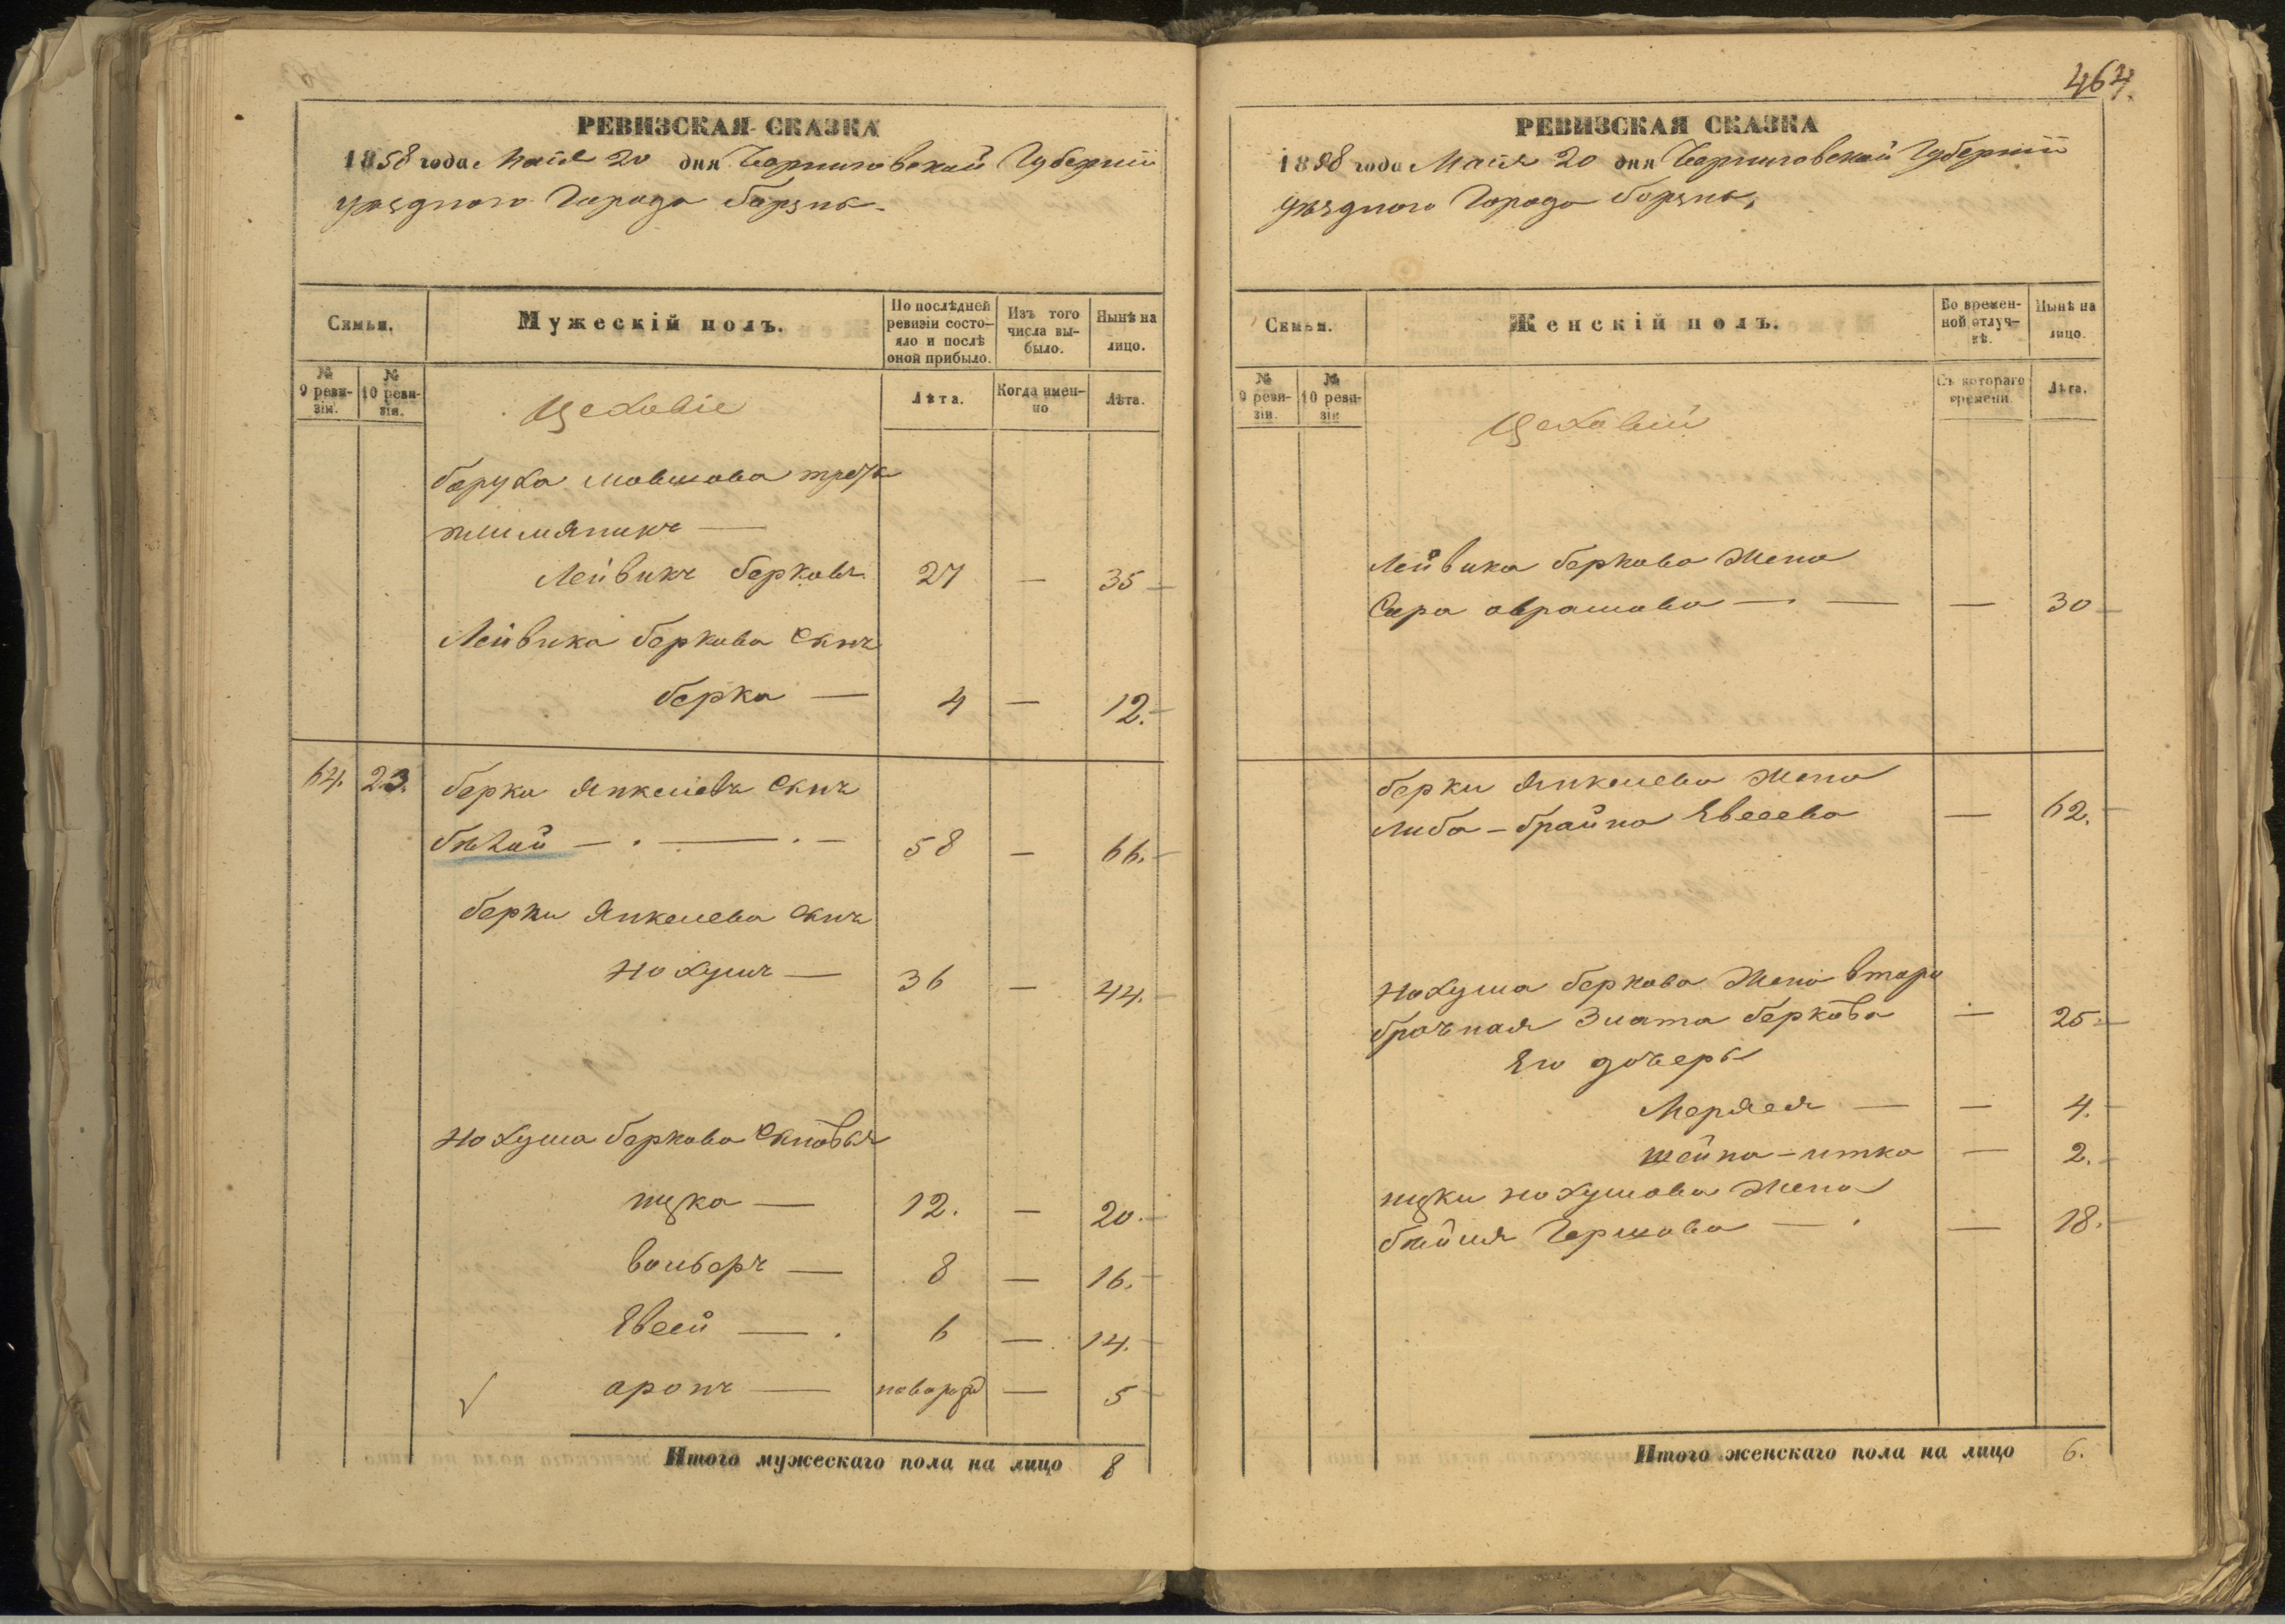 РЕВИЗСКАЯ СКАЗКА
1858 года Маія 20 дня Черниговской Губерніи
уѣзднаго Города Борзны.
Семьи.
Мужескій полъ.
По послѣдней ревизіи состояло и послѣ оной прибыло.
Изъ того числа выбыло.
Нынѣ на лицо.
№ 9 ревизіи.
№ 10 ревизіи.
Цеховіе
Лѣта.
Когда именно
Лѣта.
Боруха Мовшова
племяникъ —
Лейвикъ Берковъ 27 — 35
Лейвика Беркова Сынъ
Берка — 4 — 12.
64. 23. Берка Янкелевъ Сынъ
58 — 66.
Берки Янкелева Сынъ
Нохумъ — 36 — 44.
Нохума Беркова Сыновья
Ицка — 12. — 20.
Вольфъ — 8 — 16.
Евсей — 6 — 14.
Аронъ — новорожд — 5
Итого мужескаго пола на лицо 8
464.
РЕВИЗСКАЯ СКАЗКА
1858 года Маія 20 дня Черниговской Губерніи
уѣзднаго Города Борзны,
Семьи.
Женскій полъ.
Во временной отлучкѣ.
Нынѣ на лицо.
№ 9 ревизіи.
№ 10 ревизіи
Цеховій
Съ котораго времени.
Лѣта.
Лейвика Беркова Жена
Сира Аврамова — — — 30
Берки Янкелева Жена
Либа-Брайна Евсеева — 62.
Нохума Беркова Жена втора
брачная Злата Беркова — 25
Его дочеры
Меряся — — 4.
Шейна-Итка — 2.
Ицки Нохумова Жена
Бейля Гершова — — 18.
Итого женскаго пола на лицо 6.